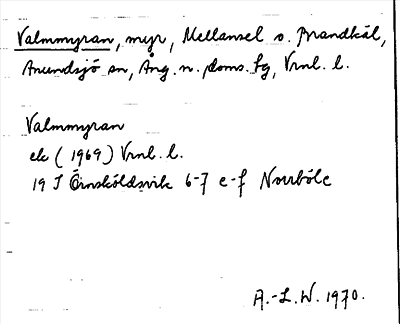 Valmmyran, myr, Mellansel o. Brandkäl,
Anundsjö sn, Ång. n. doms. fg, Vrnl. l.
Valmmyran
ek (1969) Vrnl. l.
19 J Örnsköldsvik 6-7 e-f Norrböle
A.-L.W. 1970.